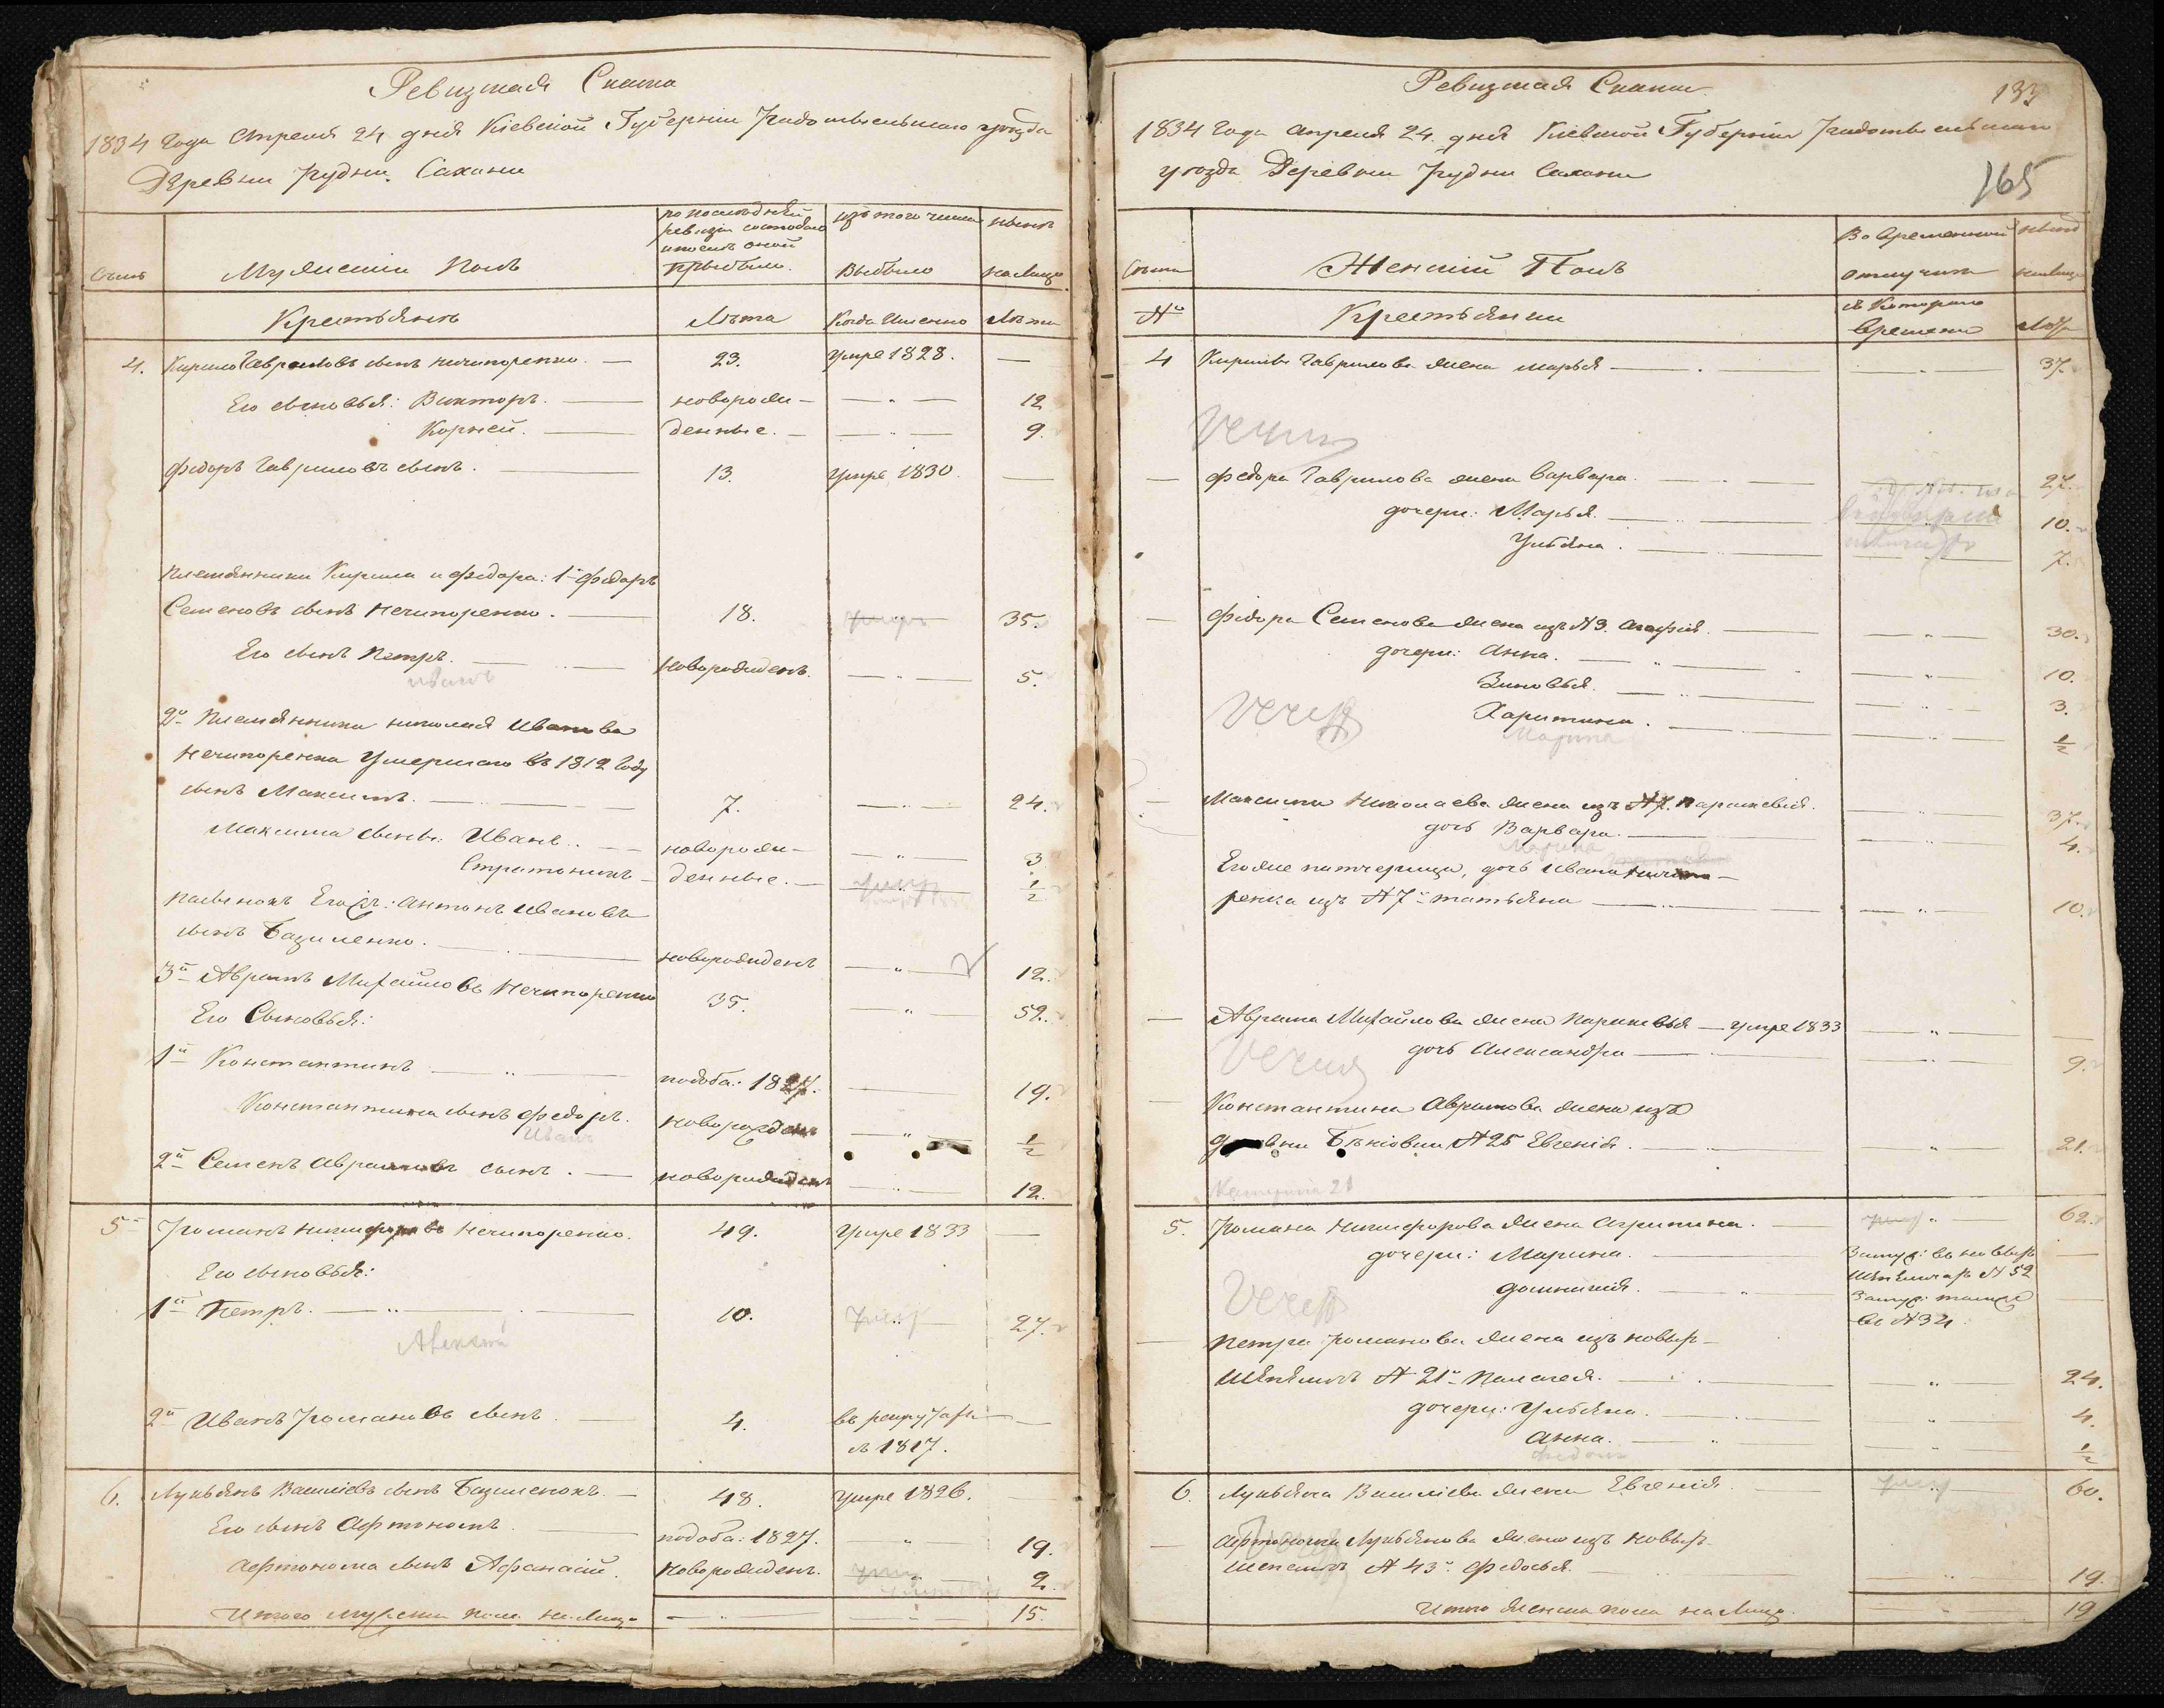 Ревизская Сказка
1834 года Апреля 24 дня Киевской Губернии Радомысльскаго уезда
Деревни Рудни Сахани
Счетъ
Мужеский Полъ
по последней ревизии состояло и после оной прибыло.
изъ того числа Выбыло
ныне на лицо
Крестьянъ
Лета
Когда Именно
Лета
4. Кирило Гавриловъ сынъ Ничипоренко. — 23. умре 1828. —
Его сыновья: Викторъ. — новорож- — 12
Корней. — денные. — 9.
Федоръ Гавриловъ сынъ. — 13. умре 1830. —
племянники Кирила и Федора: 1й Федоръ
Семеновъ сынъ Нечипоренко. — 18. — 35.
Его сынъ Петръ. — новорожденъ. — 5.
Иванъ
2й племянника Николая Иванова
Нечипоренка умершаго въ 1812 году
сынъ Максимъ. — 7. — 24.
Максима сыны: Иванъ. — новорож- — 3
Стратоникъ — денные. — 1/2
пасынокъ Его ж: Антонъ Ивановъ
сынъ Базиленко. — новорожденъ — 12.
3й Аврамъ Михайловъ Нечипоренко 35. — 52.
Его Сыновья:
1й Константинъ — подоба: 1827. — 19.
Константина сынъ Федоръ. новорожденъ — 1/2
Иванъ
2й Семенъ Аврамовъ сынъ. — новорожденъ — 12.
5й Романъ Никифоровъ Нечипоренко. 49. Умре 1833 —
Его сыновья:
1й Петръ. — 10. — 27.
Алексей
2й Иванъ Романовъ сынъ. 4. въ рекрутахъ —
съ 1817.
6. Лукьянъ Василіевъ сынъ Базиленокъ. — 48. умре 1826. —
Его сынъ Афтономъ. — подоба: 1827. — 19.
Афтонома сынъ Афанасій. Новорожденъ. — 2.
Итого мужеска пола на лицо — 15.
Ревизская Сказка
133
1834 года Апреля 24. дня Киевской Губернии Радомысльскаго
165
уезда Деревни Рудни Сахани
Счетъ
Женский Полъ
Во временной отлучке
ныне налицо
№
Крестьянки
съ Котораго времени
Лета
4 Кирила Гаврилова жена Марья — 37.
— Федора Гаврилова жена Варвара. — 27.
дочери: Марья. — 10.
Ульяна. — 7.
— Федора Семенова жена изъ №3. Агафия. — 30.
дочери: Анна. — 10.
Зиновья. — 3.
Харитина. — 1/2
Марина
— Максима Николаева жена изъ №7. Параскевія. — 37.
дочь Варвара. — 4.
Марина
Егоже патчерица, дочь Ивана Ничипо-
ренка изъ №7й татьяна — 10.
— Аврама Михайлова жена Параскевья — умре 1833 —
дочь Александра — 9.
— Константина Аврамова жена изъ
№25 Евгенія. — 21.
5. Романа Никифорова жена Агрипина. — 62.
дочери: Марина. — Замуж: въ новыхъ —
Шепеличах № 52
домникия. — Замуж: тамже —
въ №32.
— Петра Романова жена изъ новых-
Шепеличъ № 21й Палагея. — 24.
дочери: Ульяна. — 4.
Анна. — 1/2
6. Лукьяна Василіева жена Евгенія. — 60.
— Афтонома Лукьянова жена изъ новых.
Шепеличъ № 43й Федосья. — 19.
Итого женска пола на лицо. 19